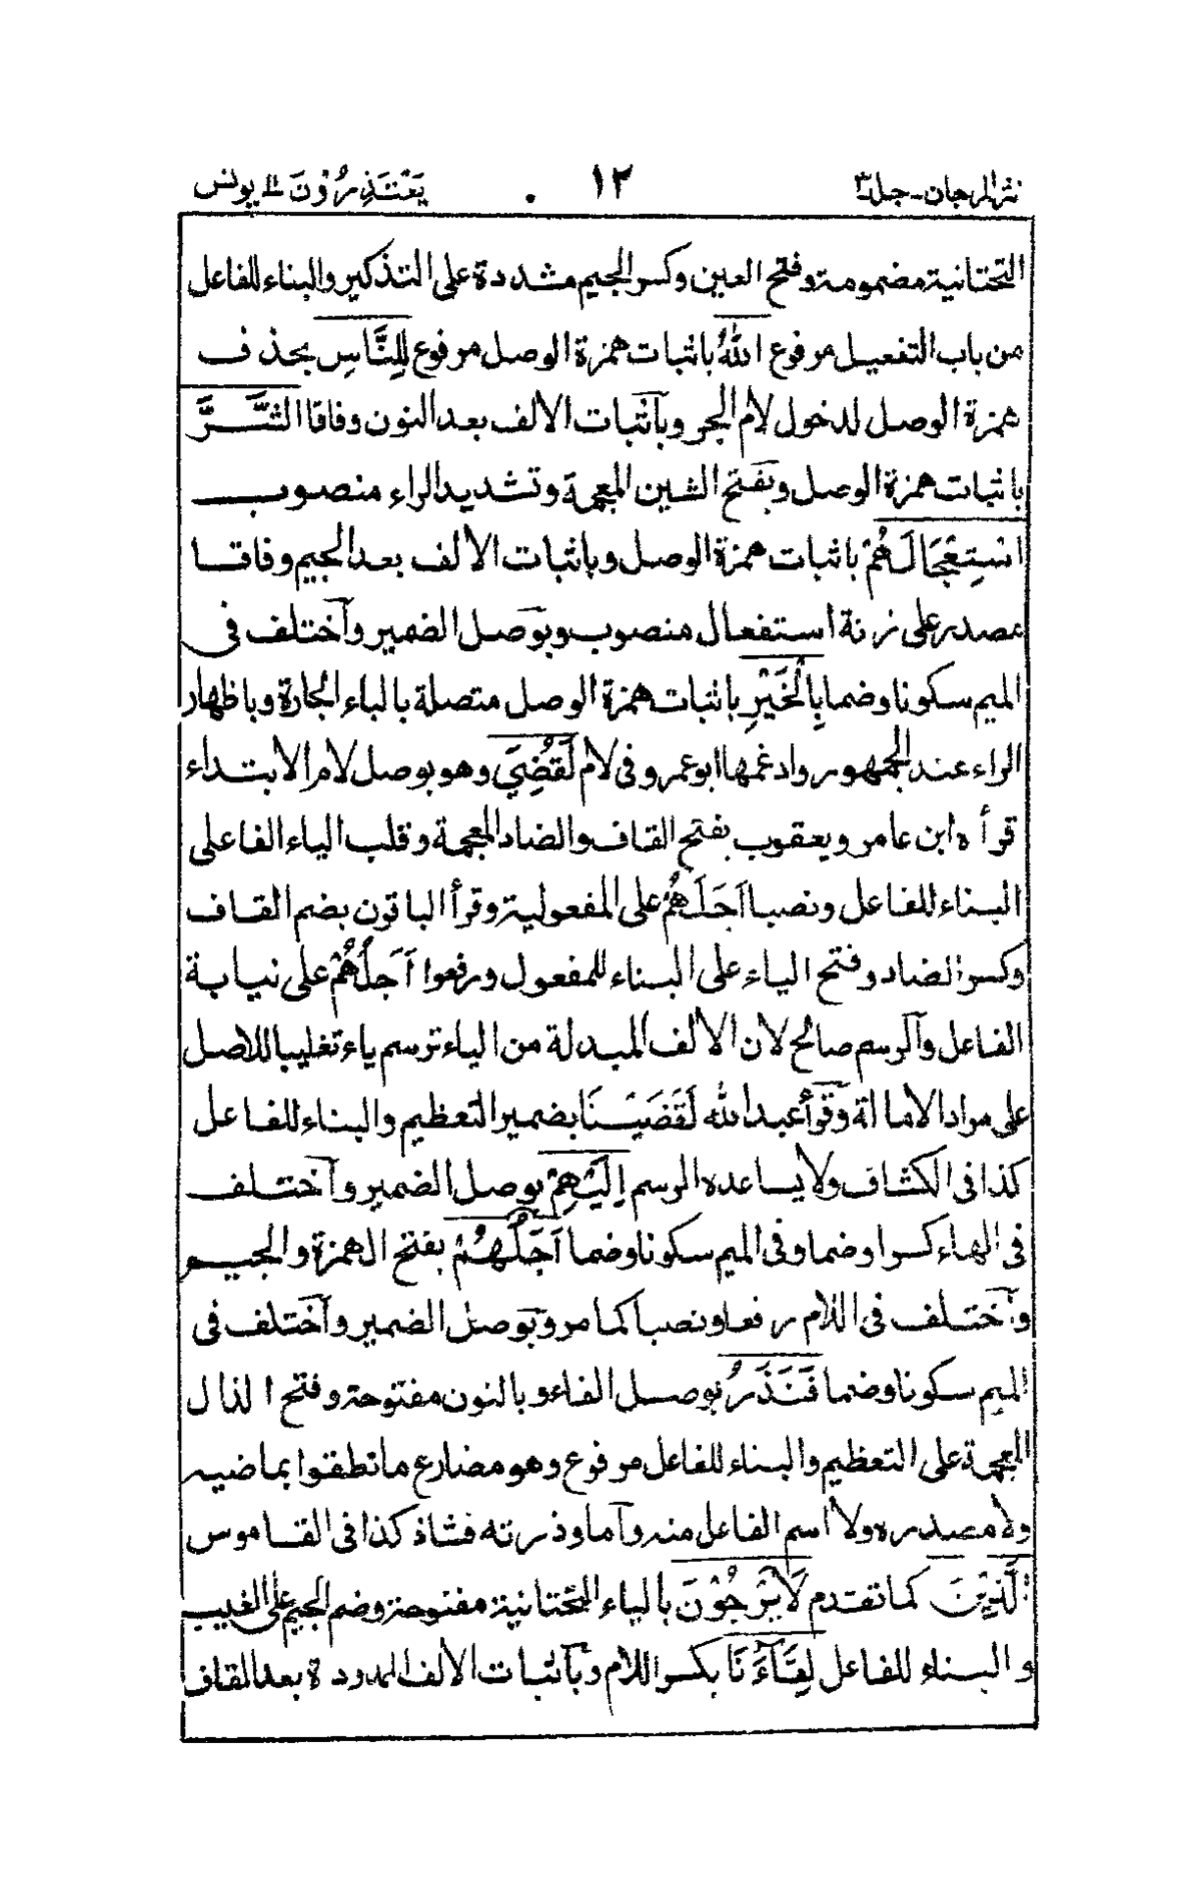 نثر المرجان - جلد ٣ ١٢ يَعْتَذِرُوْنَ ١١ يونس
التحتانية مضمومة وفتح العين وكسر الجيم مشددة على التذكير والبناء للفاعل
من باب التفعيل مرفوع اللهُ باثبات همزة الوصل مرفوع لِلنَّاسِ بحذف
همزة الوصل لدخول لام الجر وبآثبات الالف بعد النون وفاقا الشَّرَّ
باثبات همزة الوصل وبفتح الشين المعجمة وتشديد الراء منصوب
اسْتِعْجَالَهُمْ باثبات همزة الوصل وباثبات الالف بعد الجيم وفاقا
مصدر على زنة استفعال منصوب وبوصل الضمير وآختلف فى
الميم سكونا وضما بِالْخَيْرِ باثبات همزة الوصل متصلة بالباء الجارة وباظهار
الراء عند الجمهور وادغمها ابو عمرو فى لام لَقُضِيَ وهو بوصل لام الابتداء
قرأه ابن عامر ويعقوب بفتح القاف والضاد المعجمة وقلب الياء الفا على
البناء للفاعل ونصبا اَجَلَهُمْ على المفعولية وقرأ الباقون بضم القاف
وكسر الضاد وفتح الياء على البناء للمفعول ورفعوا اَجَلُهُمْ على نيابة
الفاعل وآلرسم صالح لان الالف المبدلة من الياء ترسم ياء تغليبا للاصل
على مراد الامالة وقرأ عبد الله لَقَضَيْنَا بضمير التعظيم والبناء للفاعل
كذا فى الكشاف ولا يساعده الرسم اِلَيْهِمْ بوصل الضمير وآختلف
فى الهاء كسرا وضما وفى الميم سكونا وضما اَجَلُهُمْ بفتح الهمزة والجيم
وآختلف فى اللام رفعا ونصبا كما مر وبوصل الضمير وآختلف فى
الميم سكونا وضما فَنَذَرُ بوصل الفاء وبالنون مفتوحة وفتح الذال
المعجمة على التعظيم والبناء للفاعل مرفوع وهو مضارع ما نطقوا بماضيه
ولا مصدره ولا اسم الفاعل منه وآما وذرته فشاذ كذا فى القاموس
الَّذِيْنَ كما تقدم لَا يَرْجُوْنَ بالياء التحتانية مفتوحة وضم الجيم على الغيب
والبناء للفاعل لِقَآءَنَا بكسر اللام وبآثبات الالف الممدودة بعد القاف